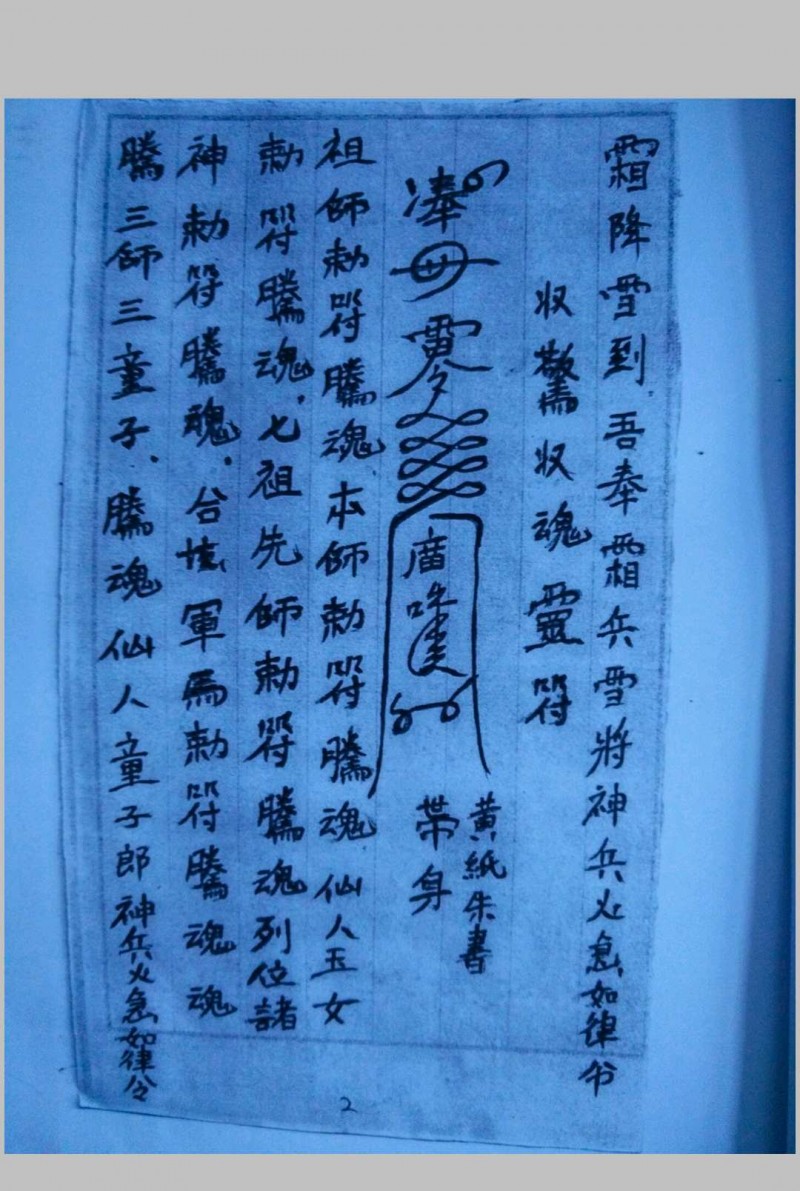 霜降雪到吾奉霜兵雪將神兵火急如律令
收驚收魂靈符
黃紙朱書
帶身
祖師勅符騰魂本師勅符騰魂仙人玉女
勅符騰魂.七祖先師勅符騰魂列位諸
神勅符騰魂.合壇軍馬勅符騰魂魂
騰三師三童子.騰魂仙人童子郎神兵火急如律令
2